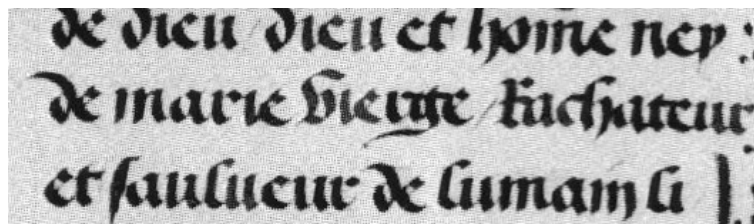 de dieu dieu et home ney :
de marie vierge / Rachateur
et saulueur de lumain li